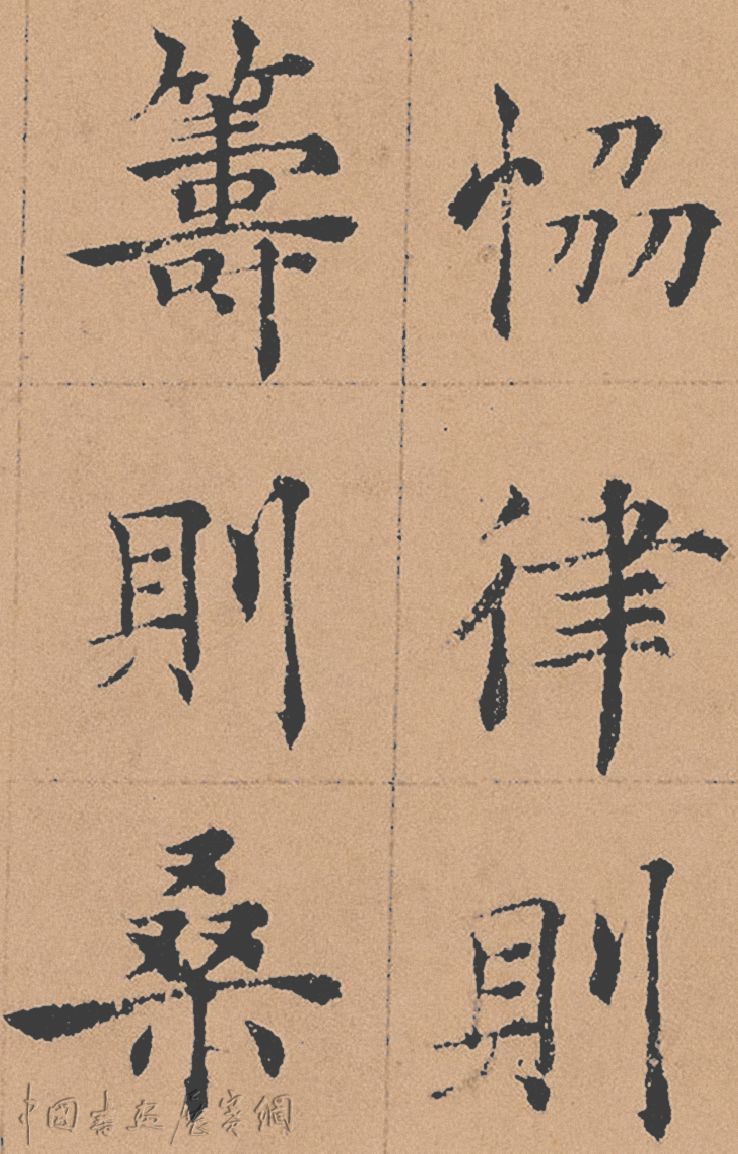 恊律則
籌則桑
中國書法展賽網